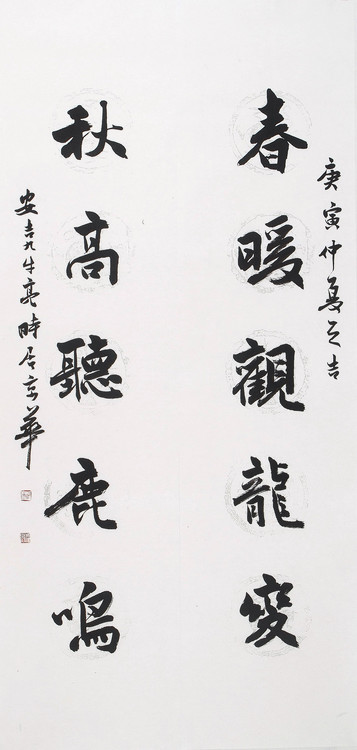 庚寅仲夏之吉
春暖觀龍變
秋高聽鹿鳴
安吉九牛亮時居京華